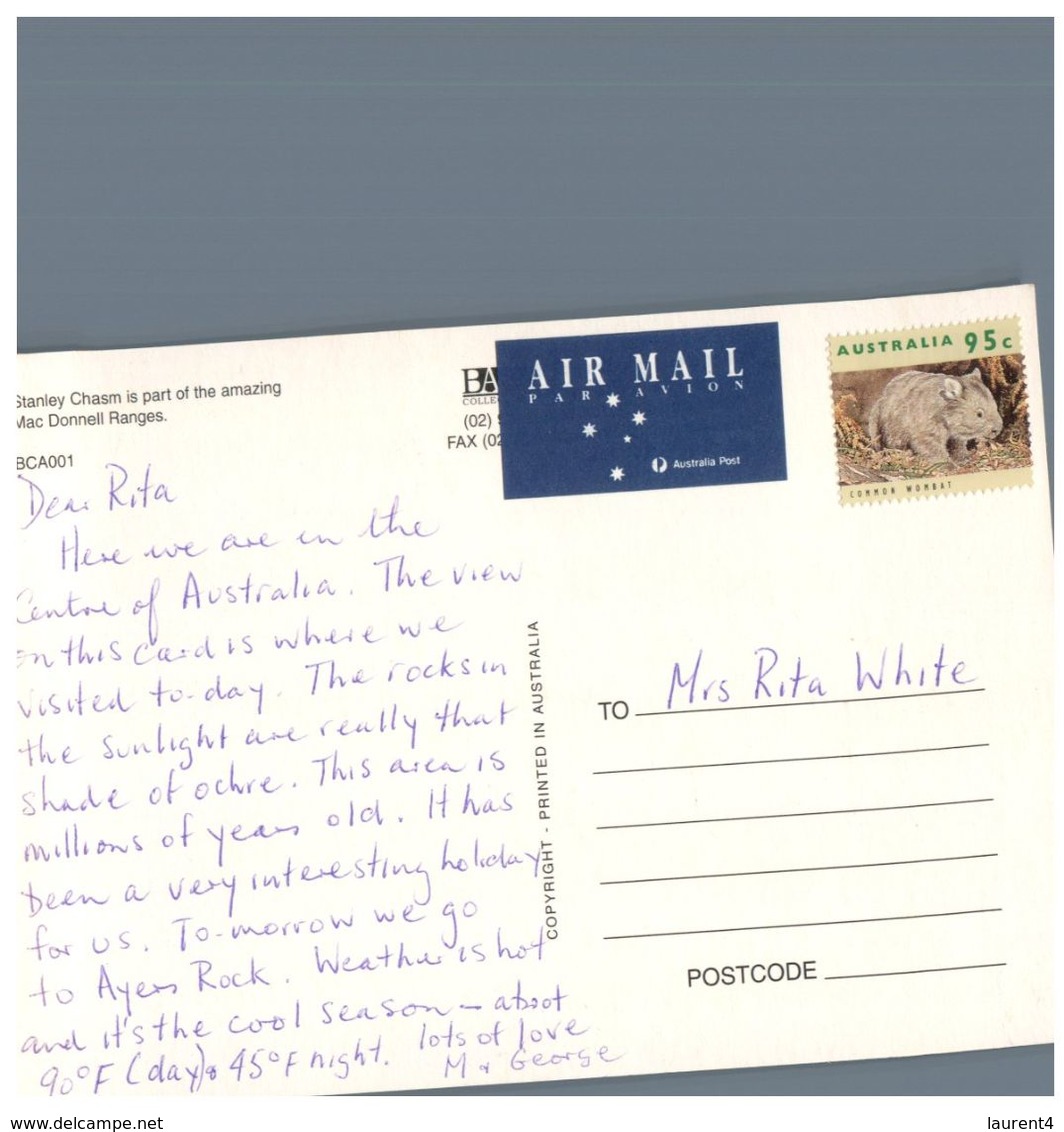 Stanley Chasm is part of the amazing
Mac Donnell Ranges.
BCA001
BA
COLLE
(02) 9
FAX (02
AIR MAIL
PAR AVION
Australia Post
AUSTRALIA 95c
COMMON WOMBAT
Dear Rita
Here we are in the
Centre of Australia. The view
on this card is where we
visited to-day. The rocks in
the sunlight are really that
shade of ochre. This area is
millions of years old. It has
been a very interesting holiday
for us. To-morrow we go
to Ayers Rock. Weather is hot
and it's the cool season - about
90°F (day) & 45°F night.
lots of love
M & George
COPYRIGHT - PRINTED IN AUSTRALIA
TO Mrs Rita White
POSTCODE
www.delcampe.net
laurent4